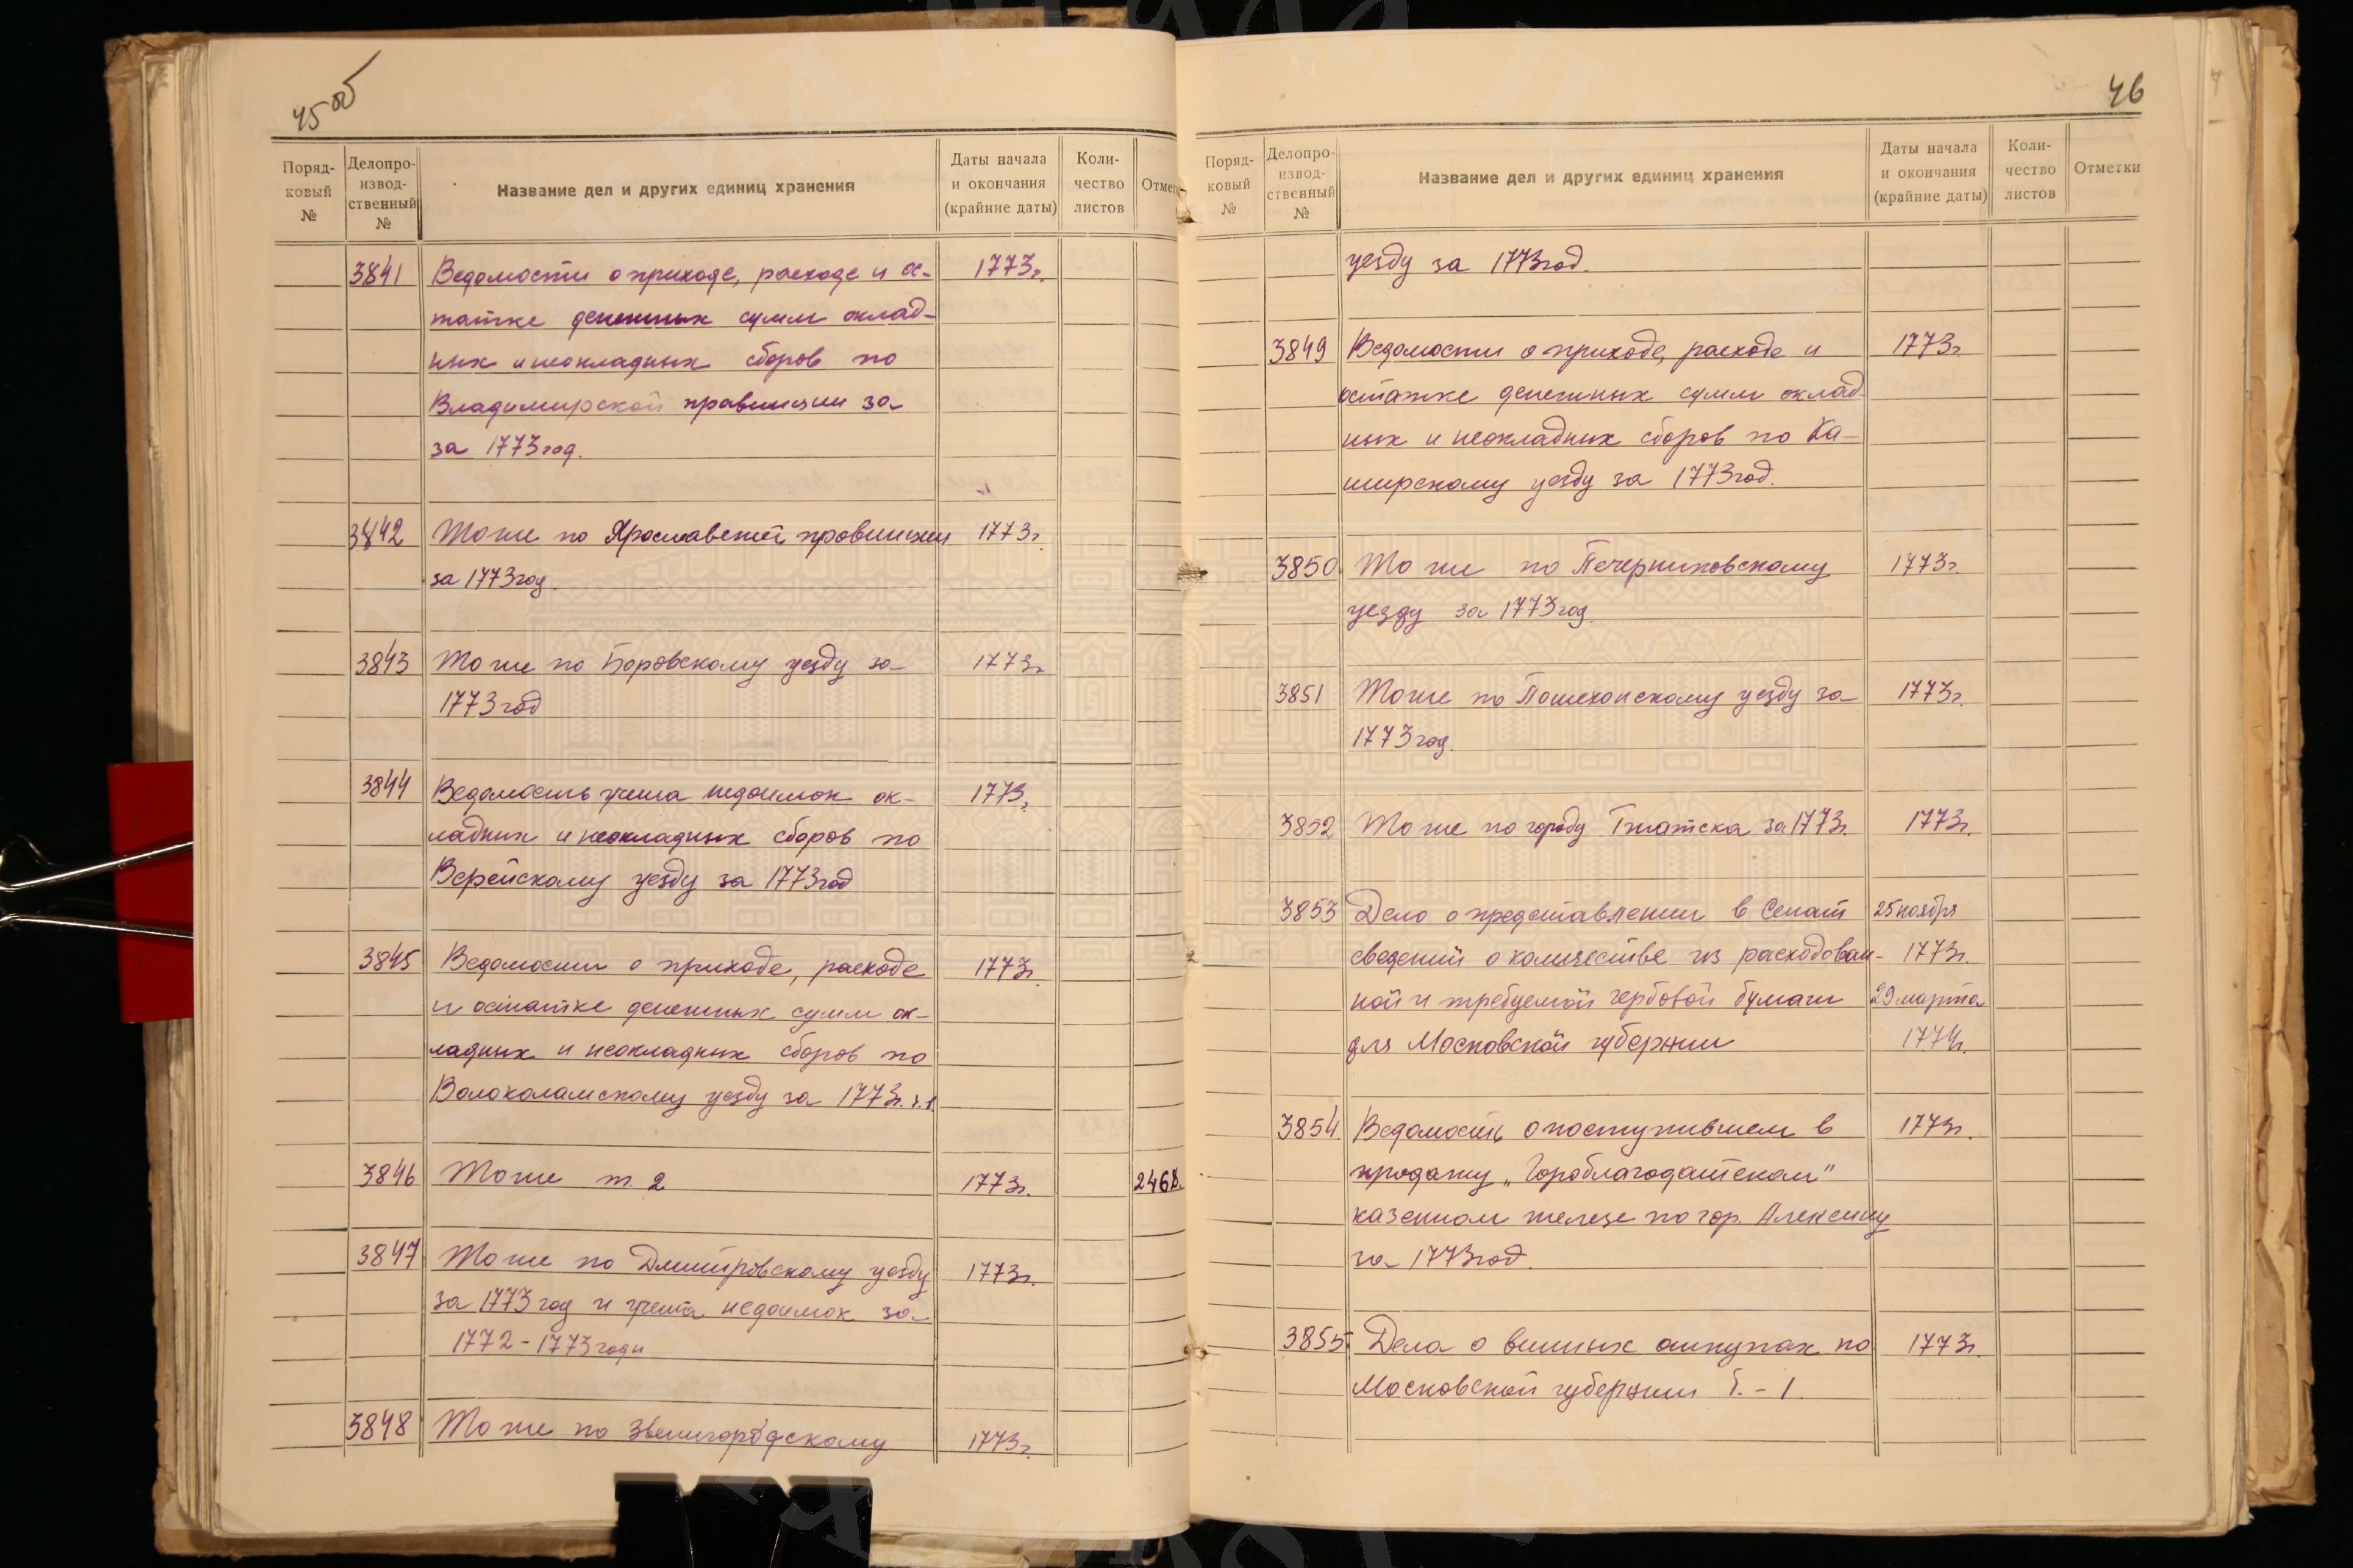 45об
Поряд-
ковый
№
Делопро-
извод-
ственный
№
Название дел и других единиц хранения
Даты начала
и окончания
(крайние даты)
Коли-
чество
листов
Отмет
3841 Ведомости о приходе, расходе и ос- 1773г.
татке денежных сумм оклад-
ных и неокладных сборов по
Владимирской правинции за
за 1773 год.
3842 То же по Ярославской провинции 1773г.
за 1773 год.
3843 То же по Боровскому уезду за 1773г.
1773 год
3844 Ведомость учета недоимок ок- 1773г.
ладных и неокладных сборов по
Верейскому уезду за 1773 год
3845 Ведомости о приходе, расходе 1773г.
и остатке денежных сумм ок-
ладных и неокладных сборов по
Волоколамскому уезду за 1773г. т.1.
3846 То же т. 2 1773г. 2468.
3847 То же по Дмитровскому уезду 1773г.
за 1773 год и учета недоимок за
1772-1773 годы
3848 То же по Звенигородскому 1773г.
46
Поряд-
ковый
№
Делопро-
извод-
ственный
№
Название дел и других единиц хранения
Даты начала
и окончания
(крайние даты)
Коли-
чество
листов
Отметки
уезду за 1773 год.
3849 Ведомости о приходе, расходе и 1773г.
остатке денежных сумм оклад-
ных и неокладных сборов по Ка-
ширскому уезду за 1773 год.
3850 То же по Печерниковскому 1773г.
уезду за 1773 год.
3851 То же по Пошехонскому уезду за 1773г.
1773 год.
3852 То же по городу Гжатска за 1773г. 1773г.
3853 Дело о представлении в Сенат 25 ноября
сведений о количестве из расходован- 1773г.
ной и требуемой гербовой бумаги 29 марта
для Московской губернии 1774г.
3854. Ведомость о поступившем в 1773г.
продажу „Гороблагодатском"
казенном железе по гор. Алексину
за 1773 год.
3855 Дела о винных откупах по 1773г.
Московской губернии Т. - 1.